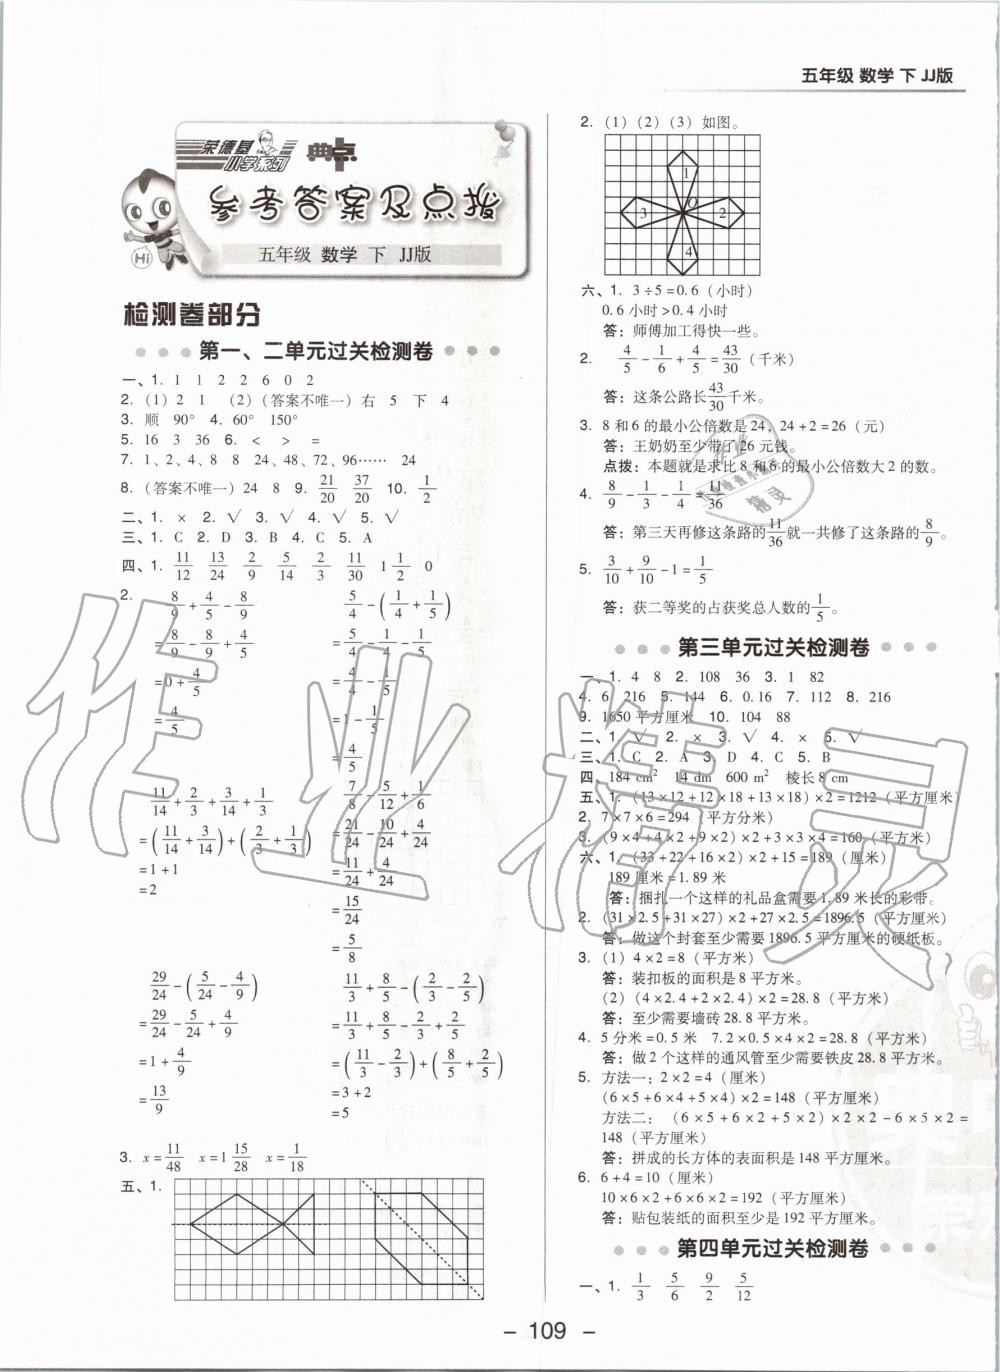 五年级 数学 下 JJ版
荣德基
小学系列
典点
参考答案及点拨
五年级 数学 下 JJ版
Hi
检测卷部分
第一、二单元过关检测卷
一、1. 1 1 2 2 6 0 2
2. (1) 2 1 (2)(答案不唯一) 右 5 下 4
3. 顺 90° 4. 60° 150°
5. 16 3 36 6. < > =
7. 1、2、4、8 8 24、48、72、96…… 24
8. (答案不唯一) 24 8 9. 21/20 37/20 10. 1/2
二、1. × 2. √ 3. √ 4. √ 5. √
三、1. C 2. D 3. B 4. C 5. A
四、1. 11/12 13/24 2/9 5/14 2/3 11/30 1 1/2 0
2. 8/9+4/5-8/9
=8/9-8/9+4/5
=0+4/5
=4/5
5/4-(1/4+1/5)
=5/4-1/4-1/5
=4/4-1/5
=1-1/5
=4/5
11/14+2/3+3/14+1/3
=(11/14+3/14)+(2/3+1/3)
=1+1
=2
7/8-5/12+1/6
=21/24-10/24+4/24
=11/24+4/24
=15/24
=5/8
29/24-(5/24-4/9)
=29/24-5/24+4/9
=1+4/9
=13/9
11/3+8/5-(2/3-2/5)
=11/3+8/5-2/3+2/5
=(11/3-2/3)+(8/5+2/5)
=3+2
=5
3. x=11/48 x=1 15/28 x=1/18
五、1.
2. (1)(2)(3) 如图。
1
O
3 2
4
六、1. 3÷5=0.6(小时)
0.6小时>0.4小时
答：师傅加工得快一些。
2. 4/5-1/6+4/5=43/30(千米)
答：这条公路长43/30千米。
3. 8和6的最小公倍数是24，24+2=26(元)
答：王奶奶至少带了26元钱。
点拨：本题就是求比8和6的最小公倍数大2的数。
4. 8/9-1/3-1/4=11/36
答：第三天再修这条路的11/36就一共修了这条路的8/9。
5. 3/10+9/10-1=1/5
答：获二等奖的占获奖总人数的1/5。
第三单元过关检测卷
一、1. 4 8 2. 108 36 3. 1 82
4. 6 216 5. 144 6. 0.16 7. 112 8. 216
9. 1650平方厘米 10. 104 88
二、1. √ 2. × 3. √ 4. × 5. √
三、1. C 2. A 3. D 4. C 5. B
四、184 cm² 14 dm 600 m² 棱长8 cm
五、1. (13×12+12×18+13×18)×2=1212(平方厘米)
2. 7×7×6=294(平方分米)
3. (9×4+4×2+9×2)×2+3×3×4=160(平方厘米)
六、1. (33+22+16×2)×2+15=189(厘米)
189厘米=1.89米
答：捆扎一个这样的礼品盒需要1.89米长的彩带。
2. (31×2.5+31×27)×2+27×2.5=1896.5(平方厘米)
答：做这个封套至少需要1896.5平方厘米的硬纸板。
3. (1) 4×2=8(平方米)
答：装扣板的面积是8平方米。
(2) (4×2.4+2×2.4)×2=28.8(平方米)
答：至少需要墙砖28.8平方米。
4. 5分米=0.5米 7.2×0.5×4×2=28.8(平方米)
答：做2个这样的通风管至少需要铁皮28.8平方米。
5. 方法一：2×2=4(厘米)
(6×5+6×4+5×4)×2=148(平方厘米)
方法二：(6×5+6×2+5×2)×2×2-6×5×2=
148(平方厘米)
答：拼成的长方体的表面积是148平方厘米。
6. 6+4=10(厘米)
10×6×2+6×6×2=192(平方厘米)
答：贴包装纸的面积至少是192平方厘米。
第四单元过关检测卷
一、1. 1/3 5/6 9/2 5/12
- 109 -
作业精灵